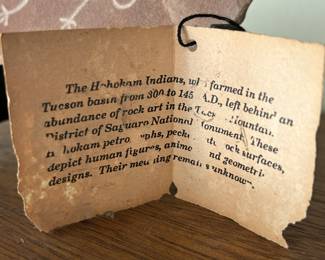 The Hohokam Indians, who farmed in the
Tucson basin from 300 to 145 A.D., left behind an
abundance of rock art in the Tucson Mountain
District of Saguaro National Monument. These
petro phs, peck ock surfaces,
depict human figures, anima nd geometri
designs. Their meaning remains unknown.